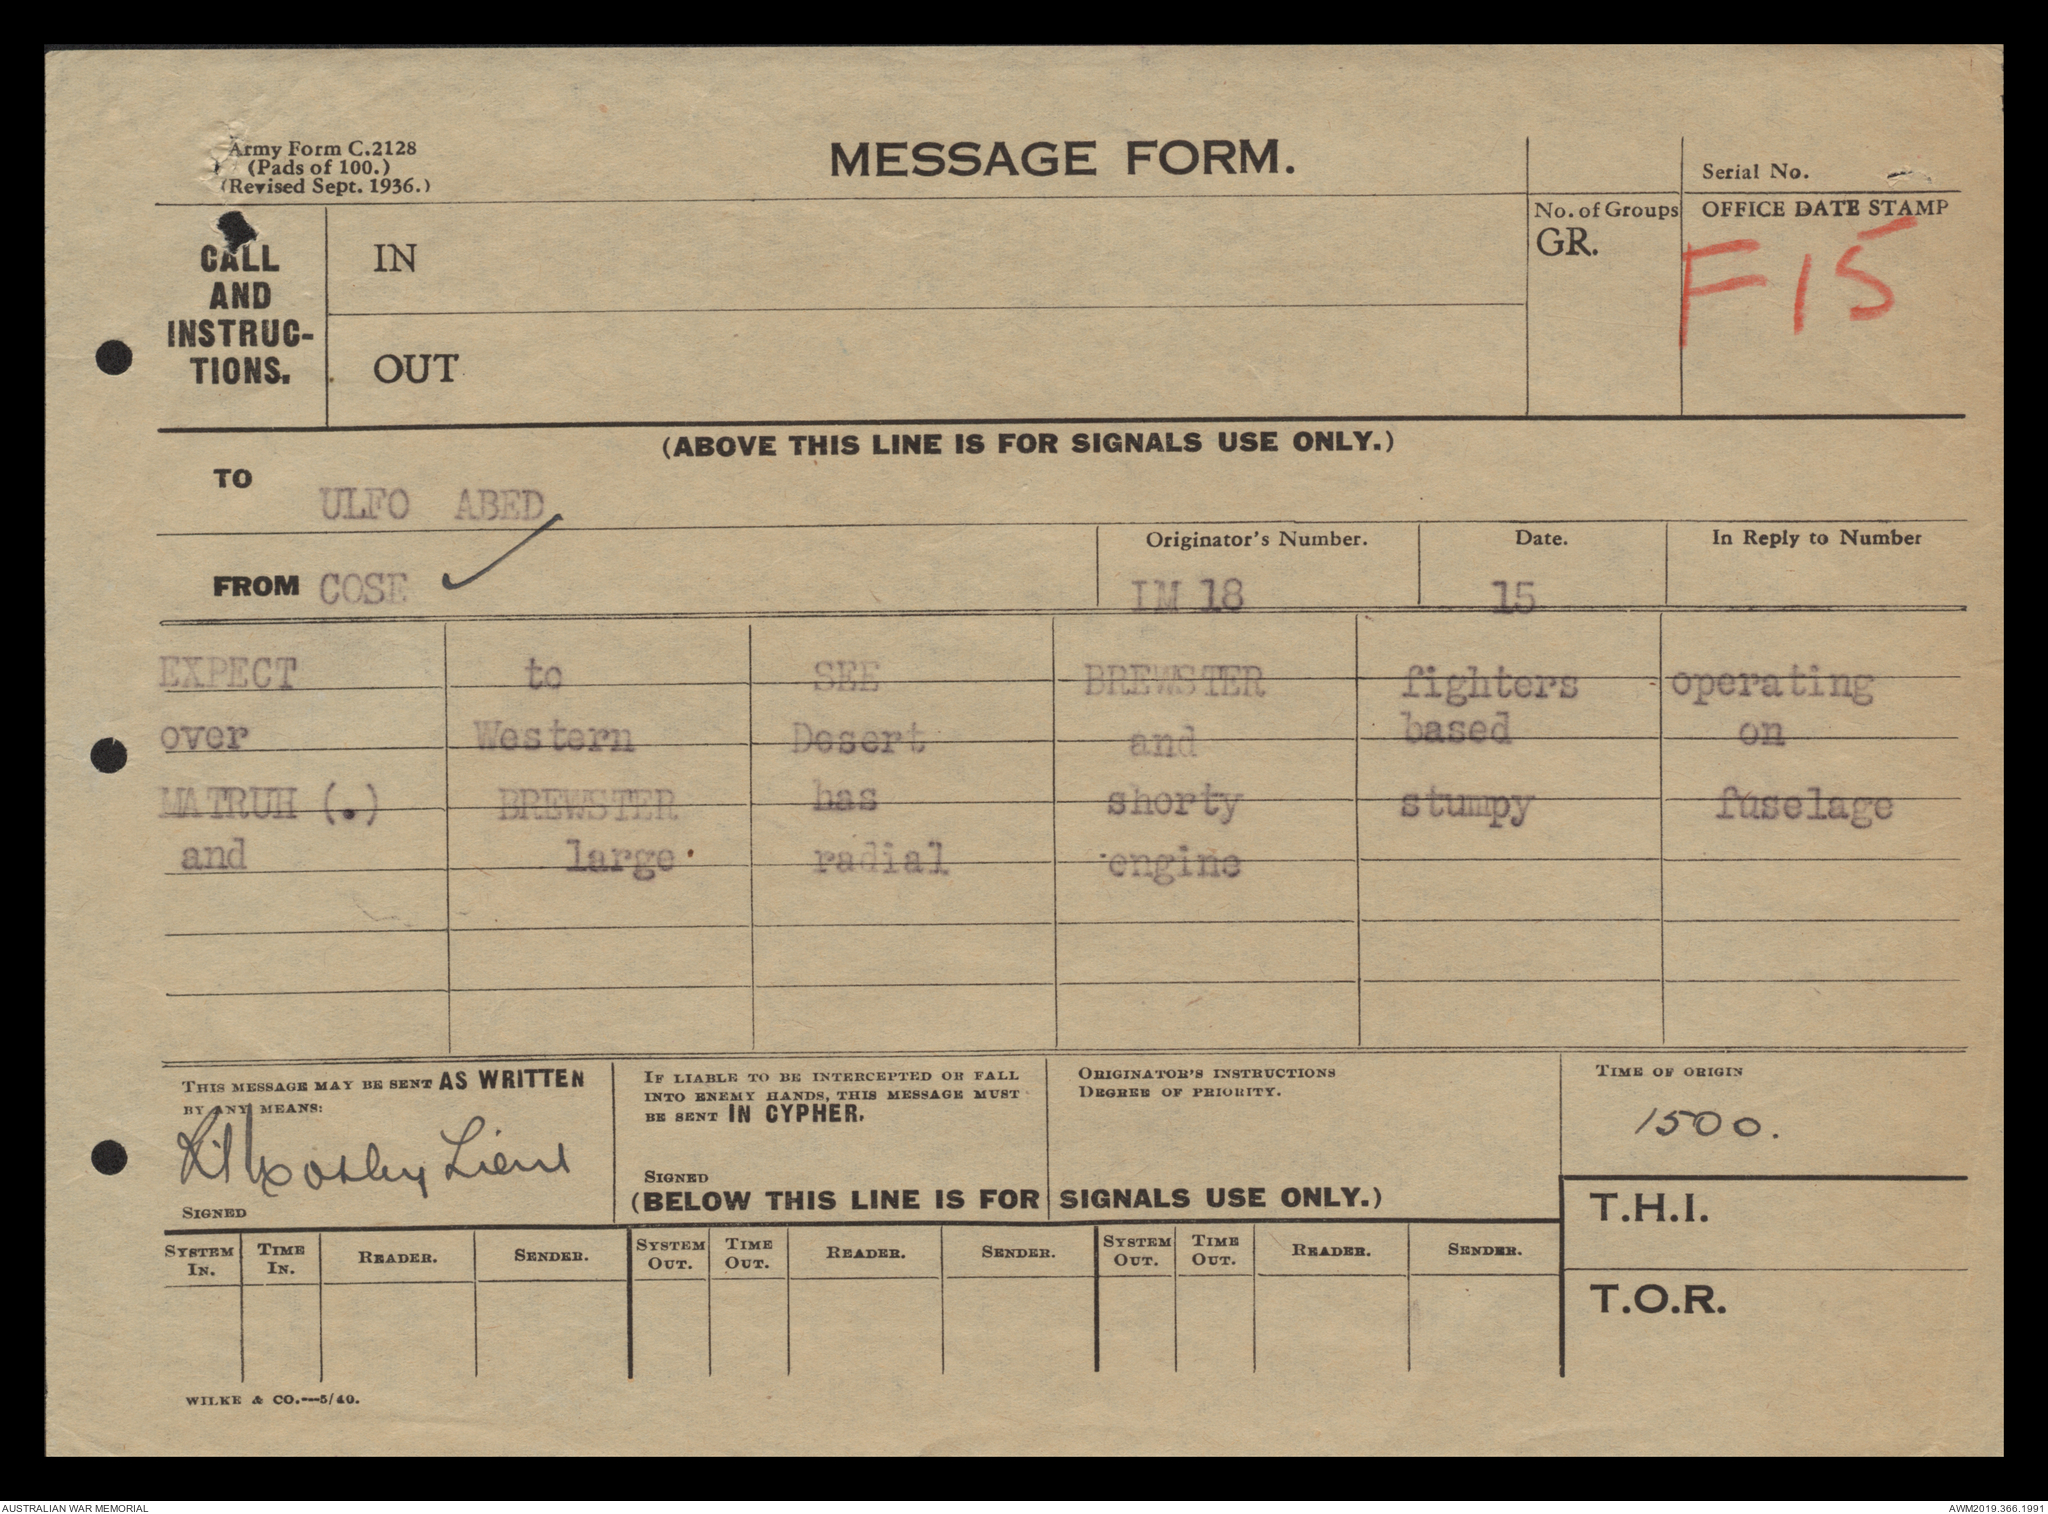 Army Form C.2128
(Pads of 100.)
(Revised Sept. 1936.)
MESSAGE FORM.
Serial No.
No. of Groups
GR.
OFFICE DATE STAMP
F15
CALL
AND
INSTRUC-
TIONS.
IN
OUT
(ABOVE THIS LINE IS FOR SIGNALS USE ONLY.)
TO
ULFO ABED
FROM COSE
Originator's Number.
IM 18
Date.
15
In Reply to Number
EXPECT to SEE BREWSTER fighters operating
over Western Desert and based on
MATRUH (.) BREWSTER has shorty stumpy fuselage
and large radial engine
THIS MESSAGE MAY BE SENT AS WRITTEN
BY ANY MEANS:
Lieut
SIGNED
IF LIABLE TO BE INTERCEPTED OR FALL
INTO ENEMY HANDS, THIS MESSAGE MUST
BE SENT IN CYPHER.
SIGNED
ORIGINATOR'S INSTRUCTIONS
DEGREE OF PRIORITY.
TIME OF ORIGIN
1500.
(BELOW THIS LINE IS FOR SIGNALS USE ONLY.)
T.H.I.
T.O.R.
SYSTEM IN. TIME IN. READER. SENDER. SYSTEM OUT. TIME OUT. READER. SENDER. SYSTEM OUT. TIME OUT. READER. SENDER.
WILKE & CO.—5/40.
AUSTRALIAN WAR MEMORIAL
AWM2019.366.1991